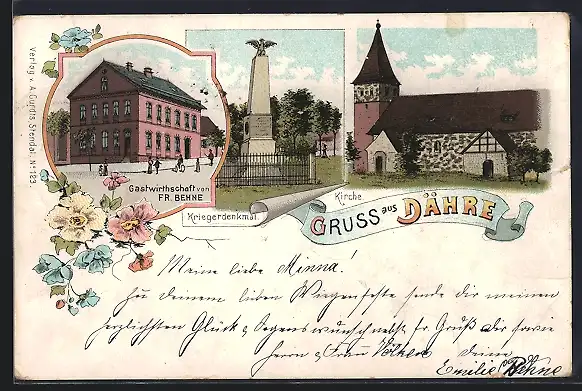 Verlag v. A. Gundt's, Stendal. No 123
Gastwirthschaft von
FR. BEHNE
Kriegerdenkmal.
Kirche
GRUSS aus DÄHRE
Meine liebe Minna!
Zu deinem lieben Wiegenfeste sende dir meinen
herzlichsten Glück & Segenswunsch nebst fr. Gruß dir sowie
Herrn & Frau Völker deine
Emilie Behne